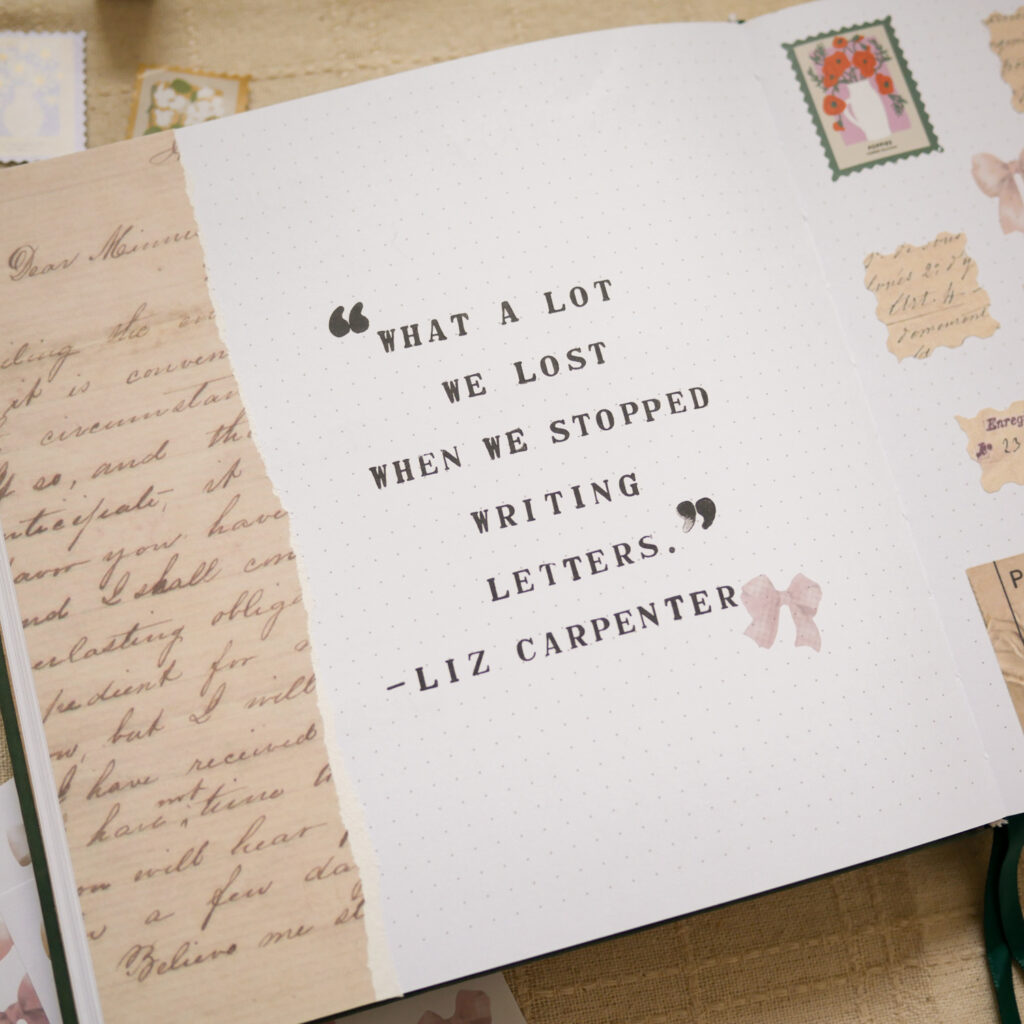 Dear Minnie
the
it is conven
circumstan
so, and th
nticipate, it
favor you have
nd I shall con
erlasting oblig
pedient for
w, but I will
I have received
not
have time t
will hear
a few da
Believe me st
“WHAT A LOT
WE LOST
WHEN WE STOPPED
WRITING
LETTERS.”
-LIZ CARPENTER
POPPIES
Art. 4
Enreg
23
P